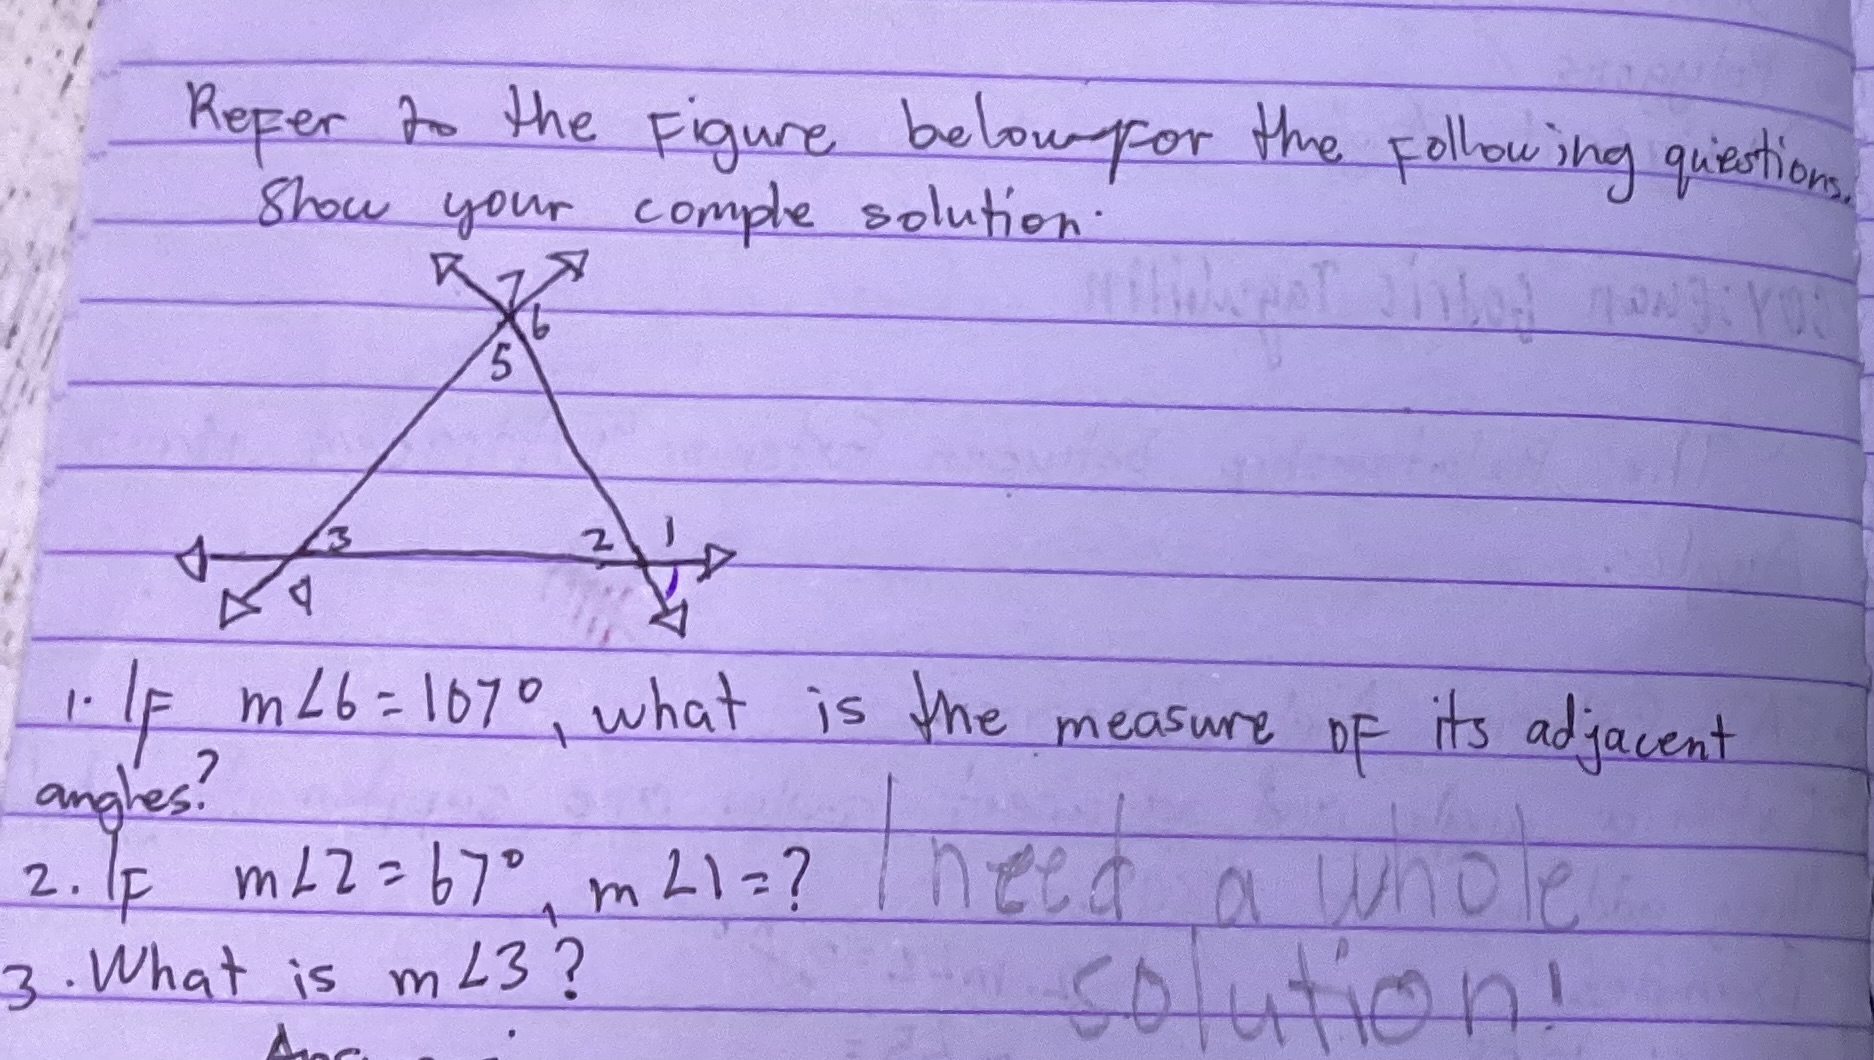 Refer to the Figure below for the Following questions.
Show your comple solution.
7
6
5
3
2
1
4
1. IF m∠6=107°, what is the measure oF its adjacent
angles?
2. IF m∠2=67°, m∠1=?
I need a whole
3. What is m∠3?
solution!